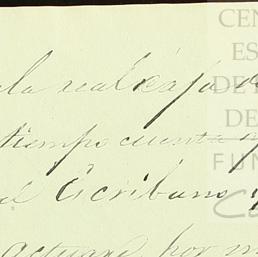 la real caja de
tiempo cuenta
el Escribano
actuare por m
CEN
ES
DE
DE
FUN